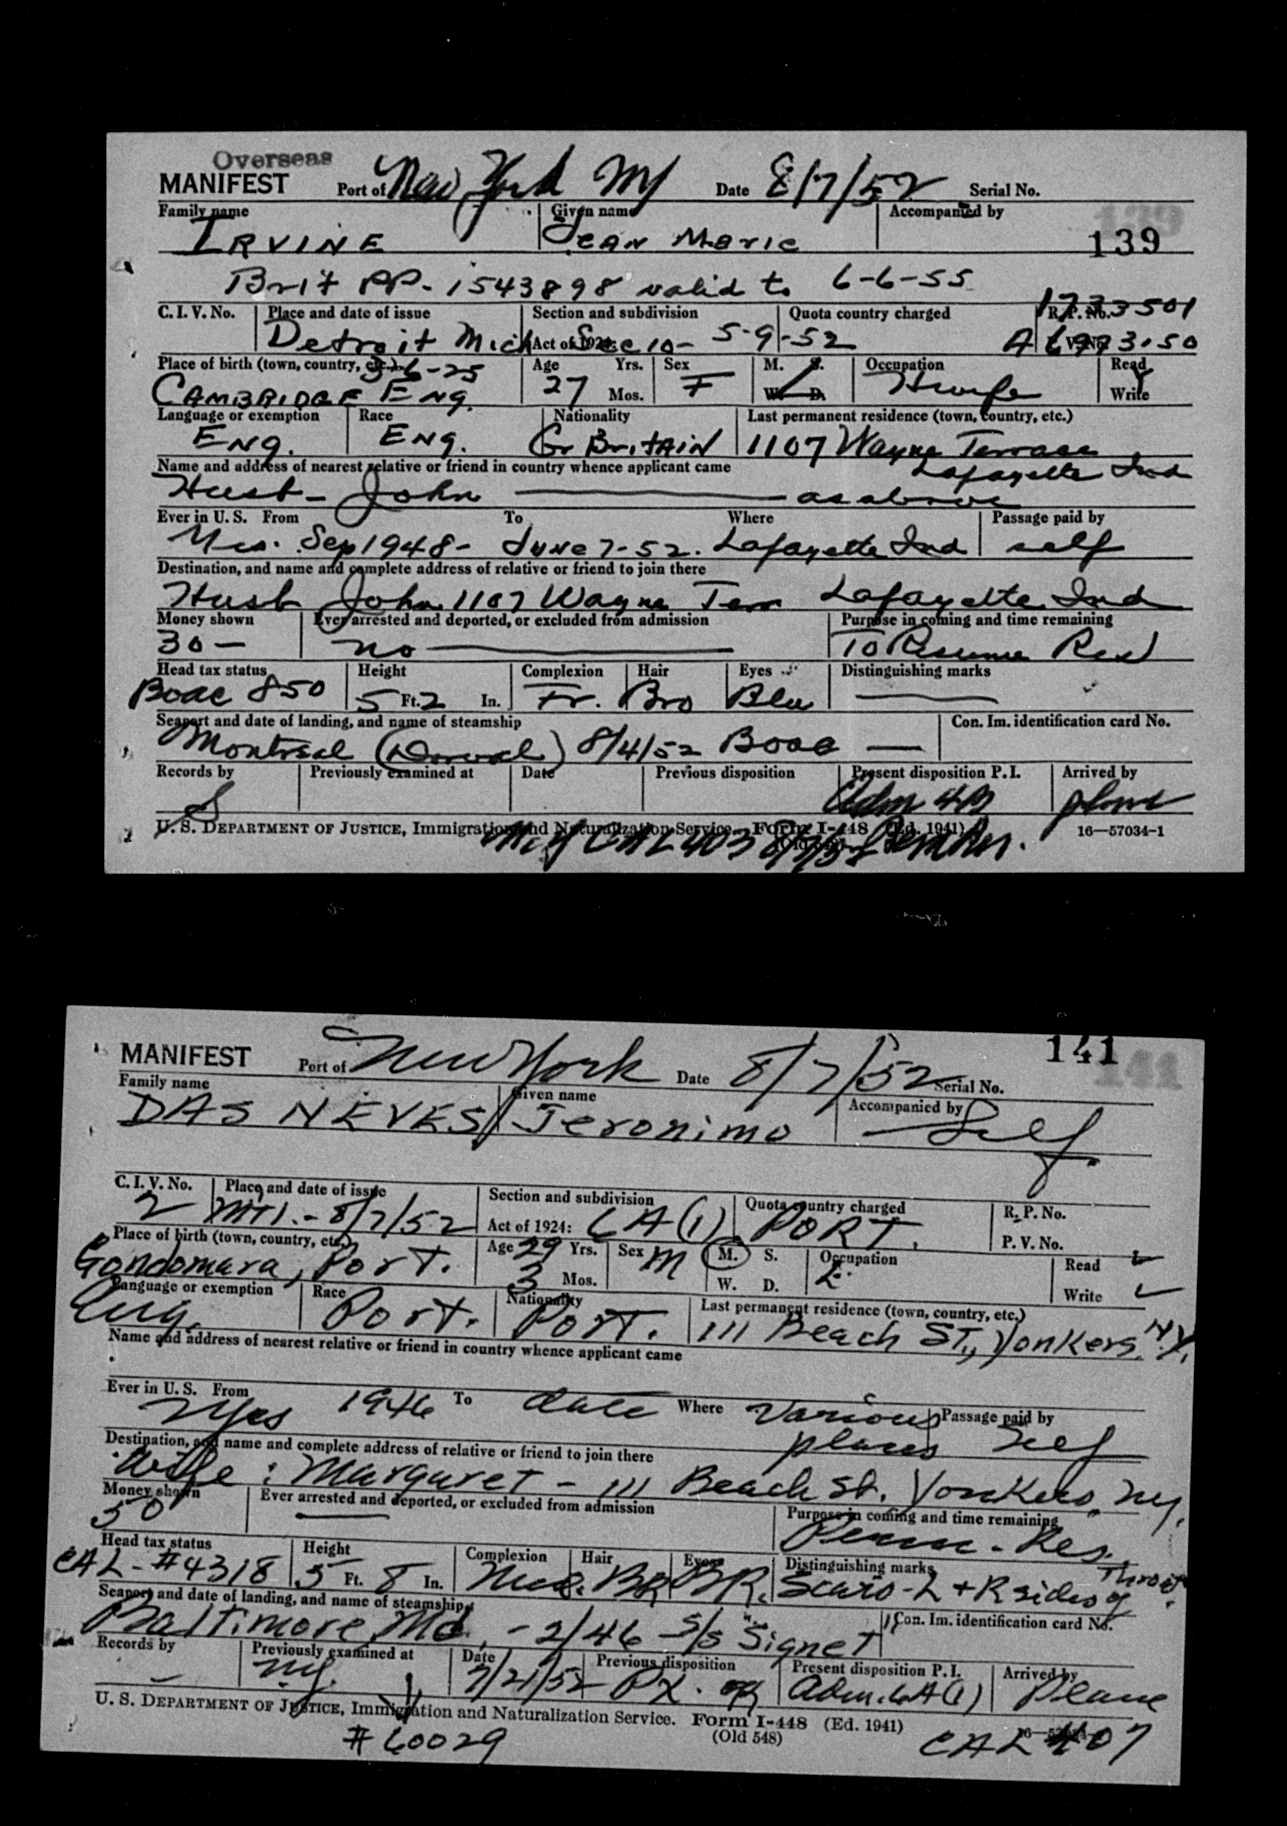 Overseas
MANIFEST Port of New York NY Date 8/7/52 Serial No.
Family name Given name Accompanied by 139
IRVINE Jean Marie 139
Brit PP. 1543898 valid to 6-6-55
C. I. V. No. Place and date of issue Section and subdivision Quota country charged R. P. No. 1733501
Detroit Mich Act of 1924: Sec 10- 5-9-52
Place of birth (town, country, etc.) 3-6-25 Age Yrs. Sex M. S. Occupation Read
CAMBRIDGE Eng. 27 Mos. F W. D. Hwife Write
Language or exemption Race Nationality Last permanent residence (town, country, etc.)
Eng. Eng. Gr Britain 1107 Wayne Terrace
Name and address of nearest relative or friend in country whence applicant came Lafayette Ind
Husb- John as above
Ever in U. S. From To Where Passage paid by
Yes. Sep 1948- June 7-52. Lafayette Ind self
Destination, and name and complete address of relative or friend to join there
Husb John 1107 Wayne Terr Lafayette Ind
Money shown Ever arrested and deported, or excluded from admission Purpose in coming and time remaining
30- no To Resume Res
Head tax status Height Complexion Hair Eyes Distinguishing marks
Boac 850 5 Ft. 2 In. Fr. Bro Blu
Seaport and date of landing, and name of steamship Con. Im. identification card No.
Montreal (Dorval) 8/4/52 Boac
Records by Previously examined at Date Previous disposition Present disposition P. I. Arrived by
S Adm plane
U. S. DEPARTMENT OF JUSTICE, Immigration and Naturalization Service. Form I-448 (Ed. 1941) 16—57034-1
CAL 403 8/7/52
141
MANIFEST Port of New York Date 8/7/52 Serial No. 141
Family name Given name Accompanied by
DAS NEVES Jeronimo Self
C. I. V. No. Place and date of issue Section and subdivision Quota country charged R. P. No.
2 Mtl. - 8/7/52 Act of 1924: 6A(1) PORT. P. V. No.
Place of birth (town, country, etc.) Age 29 Yrs. Sex M M. S. Occupation Read
Gondomara, Port. 3 Mos. W. D. Write
Language or exemption Race Nationality Last permanent residence (town, country, etc.)
Eng. Port. Port. 111 Beach St., Yonkers, N.Y.
Name and address of nearest relative or friend in country whence applicant came
Ever in U. S. From To Where Passage paid by
Yes 1946 date Various places Self
Destination, and name and complete address of relative or friend to join there
Wife: Margaret - 111 Beach St. Yonkers, Ny.
Money shown Ever arrested and deported, or excluded from admission Purpose in coming and time remaining
50 Perm. Res.
Head tax status Height Complexion Hair Eyes Distinguishing marks
CAL-#4318 5 Ft. 8 In. Med. BR BR. Scars-L+R sides of Throat
Seaport and date of landing, and name of steamship Con. Im. identification card No.
Baltimore, Md. - 2/46 S/S "Signet"
Records by Previously examined at Date Previous disposition Present disposition P. I. Arrived by
Ny. 7/21/52 Adm. 6A(1) Plane
U. S. DEPARTMENT OF JUSTICE, Immigration and Naturalization Service. Form I-448 (Ed. 1941)
(Old 548)
#60029 CAL 407